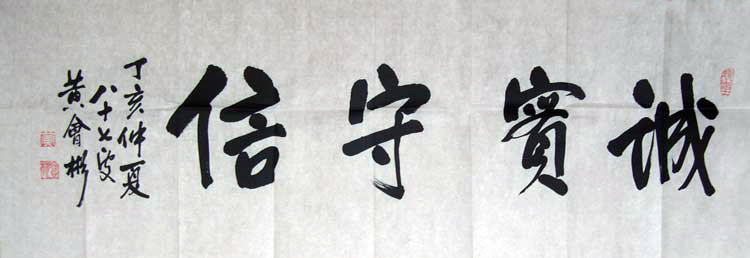 誠實守信
丁亥仲夏
八十七叟
黄會彬